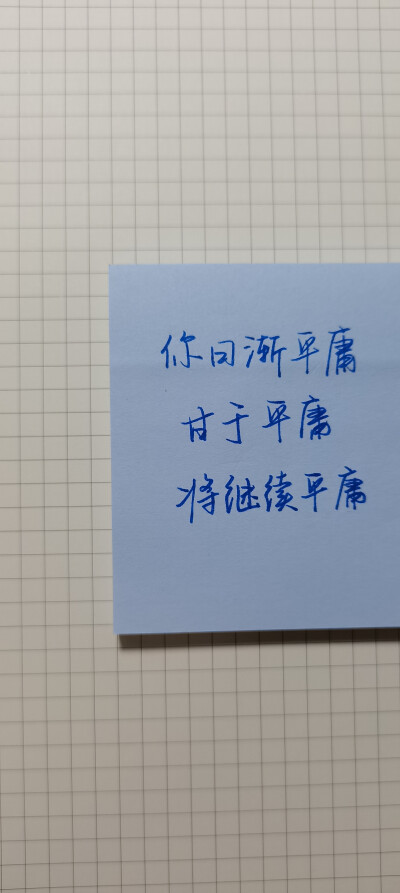 你日渐平庸
甘于平庸
将继续平庸